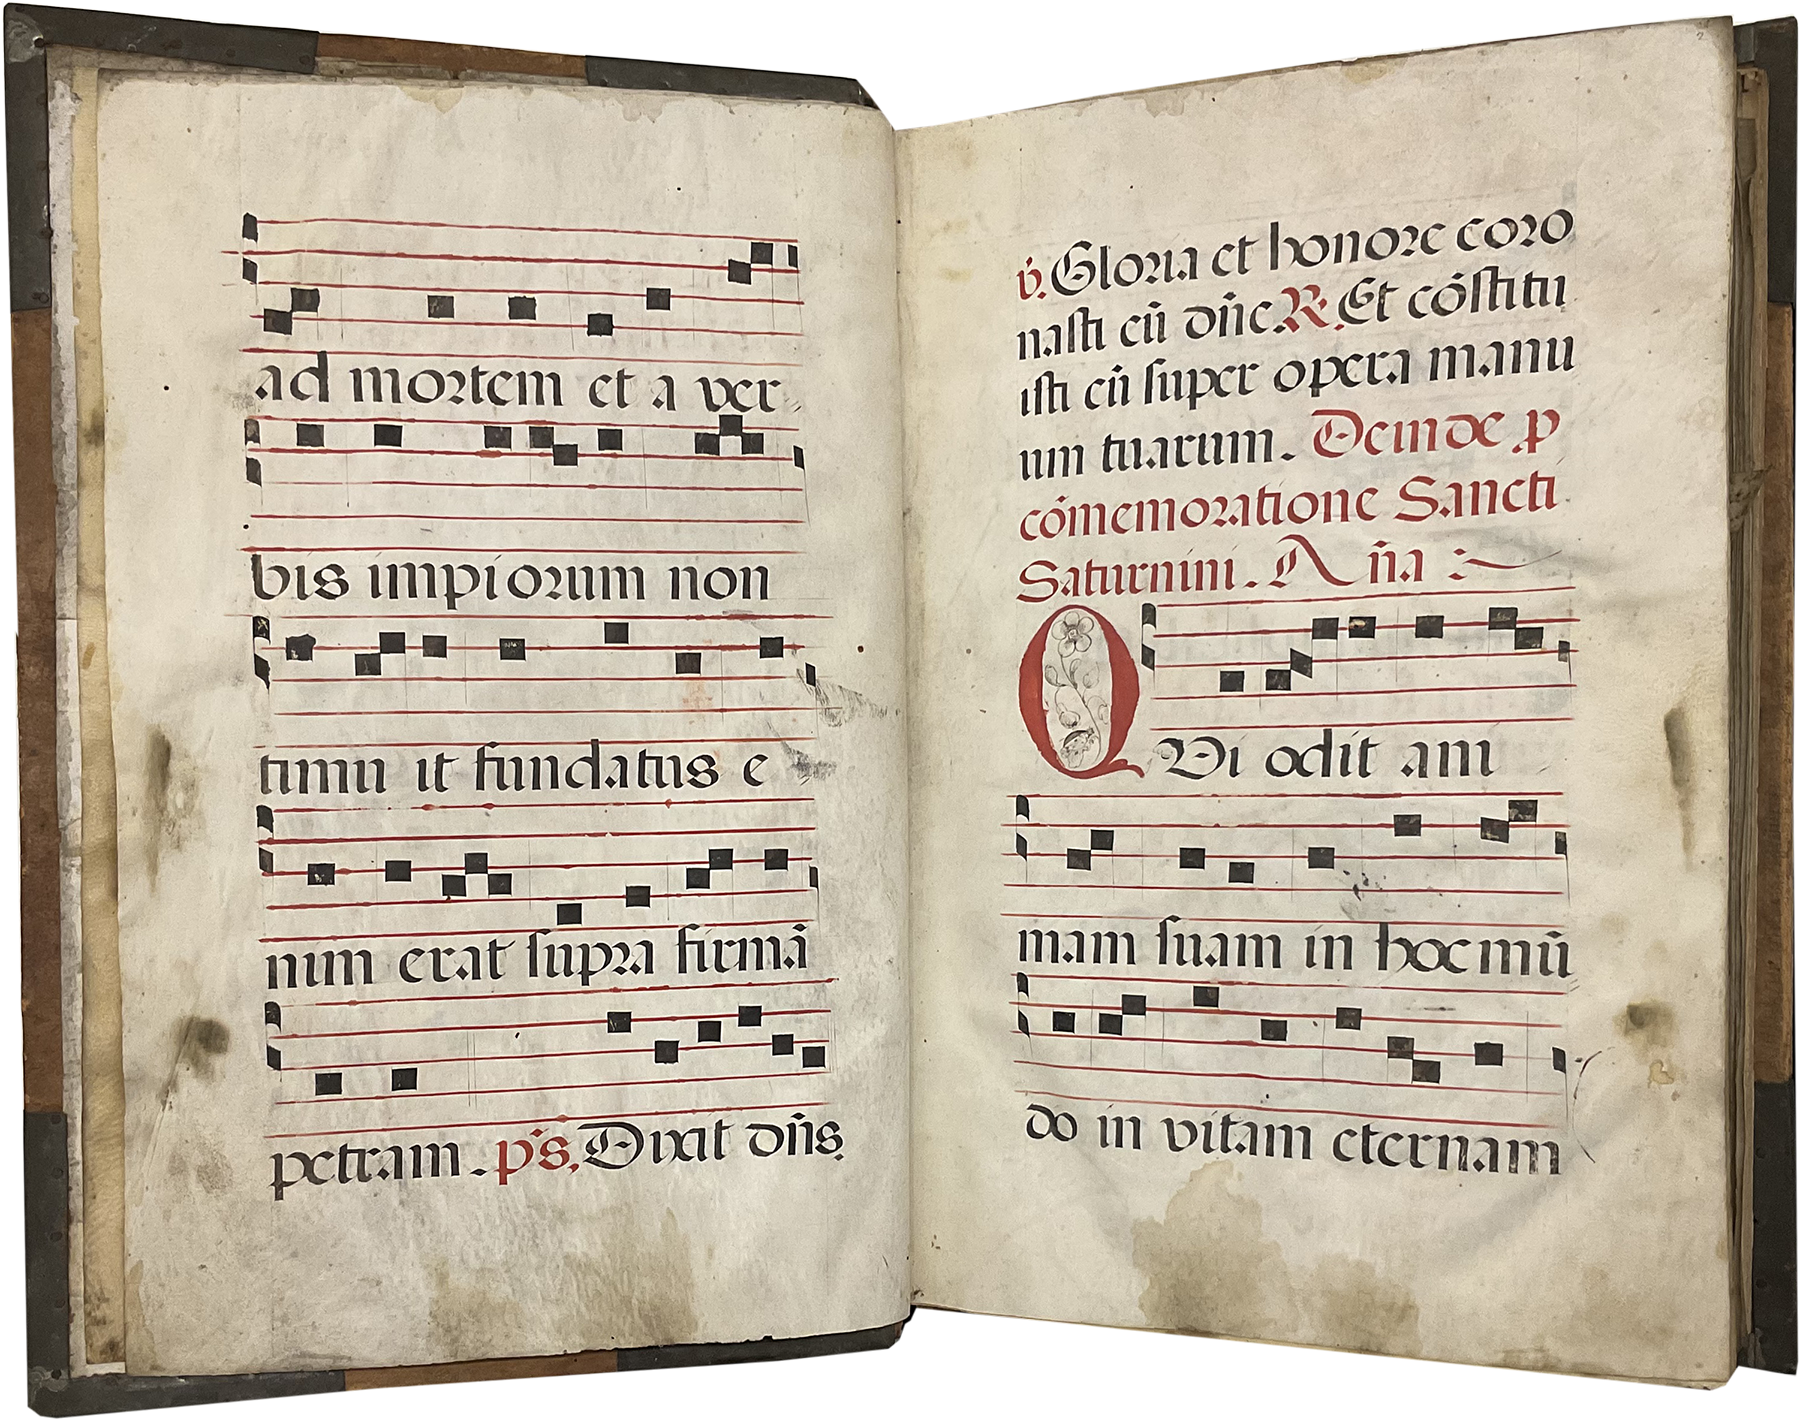 ad mortem et a ver
bis impiorum non
timu it fundatus e
nim erat supra firmā
petram. ps. Dixit dn̄s.
2
v̇. Gloria et honore coro
nasti eū dn̄e. R. Et cōstitu
isti eū super opera manu
um tuarum. Deinde p
cōmemoratione Sancti
Saturnini. A n̄a
QVi odit ani
mam suam in hoc mū
do in vitam eternam